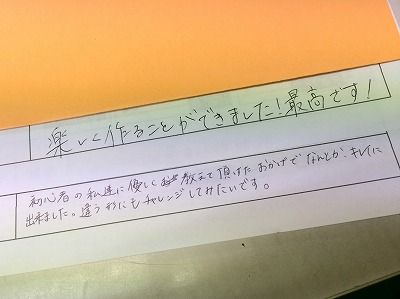 楽しく作ることができました!最高です!
初心者の私達に優しく教えて頂けたおかげでなんとか、キレイに
出来ました。違う形にもチャレンジしてみたいです。